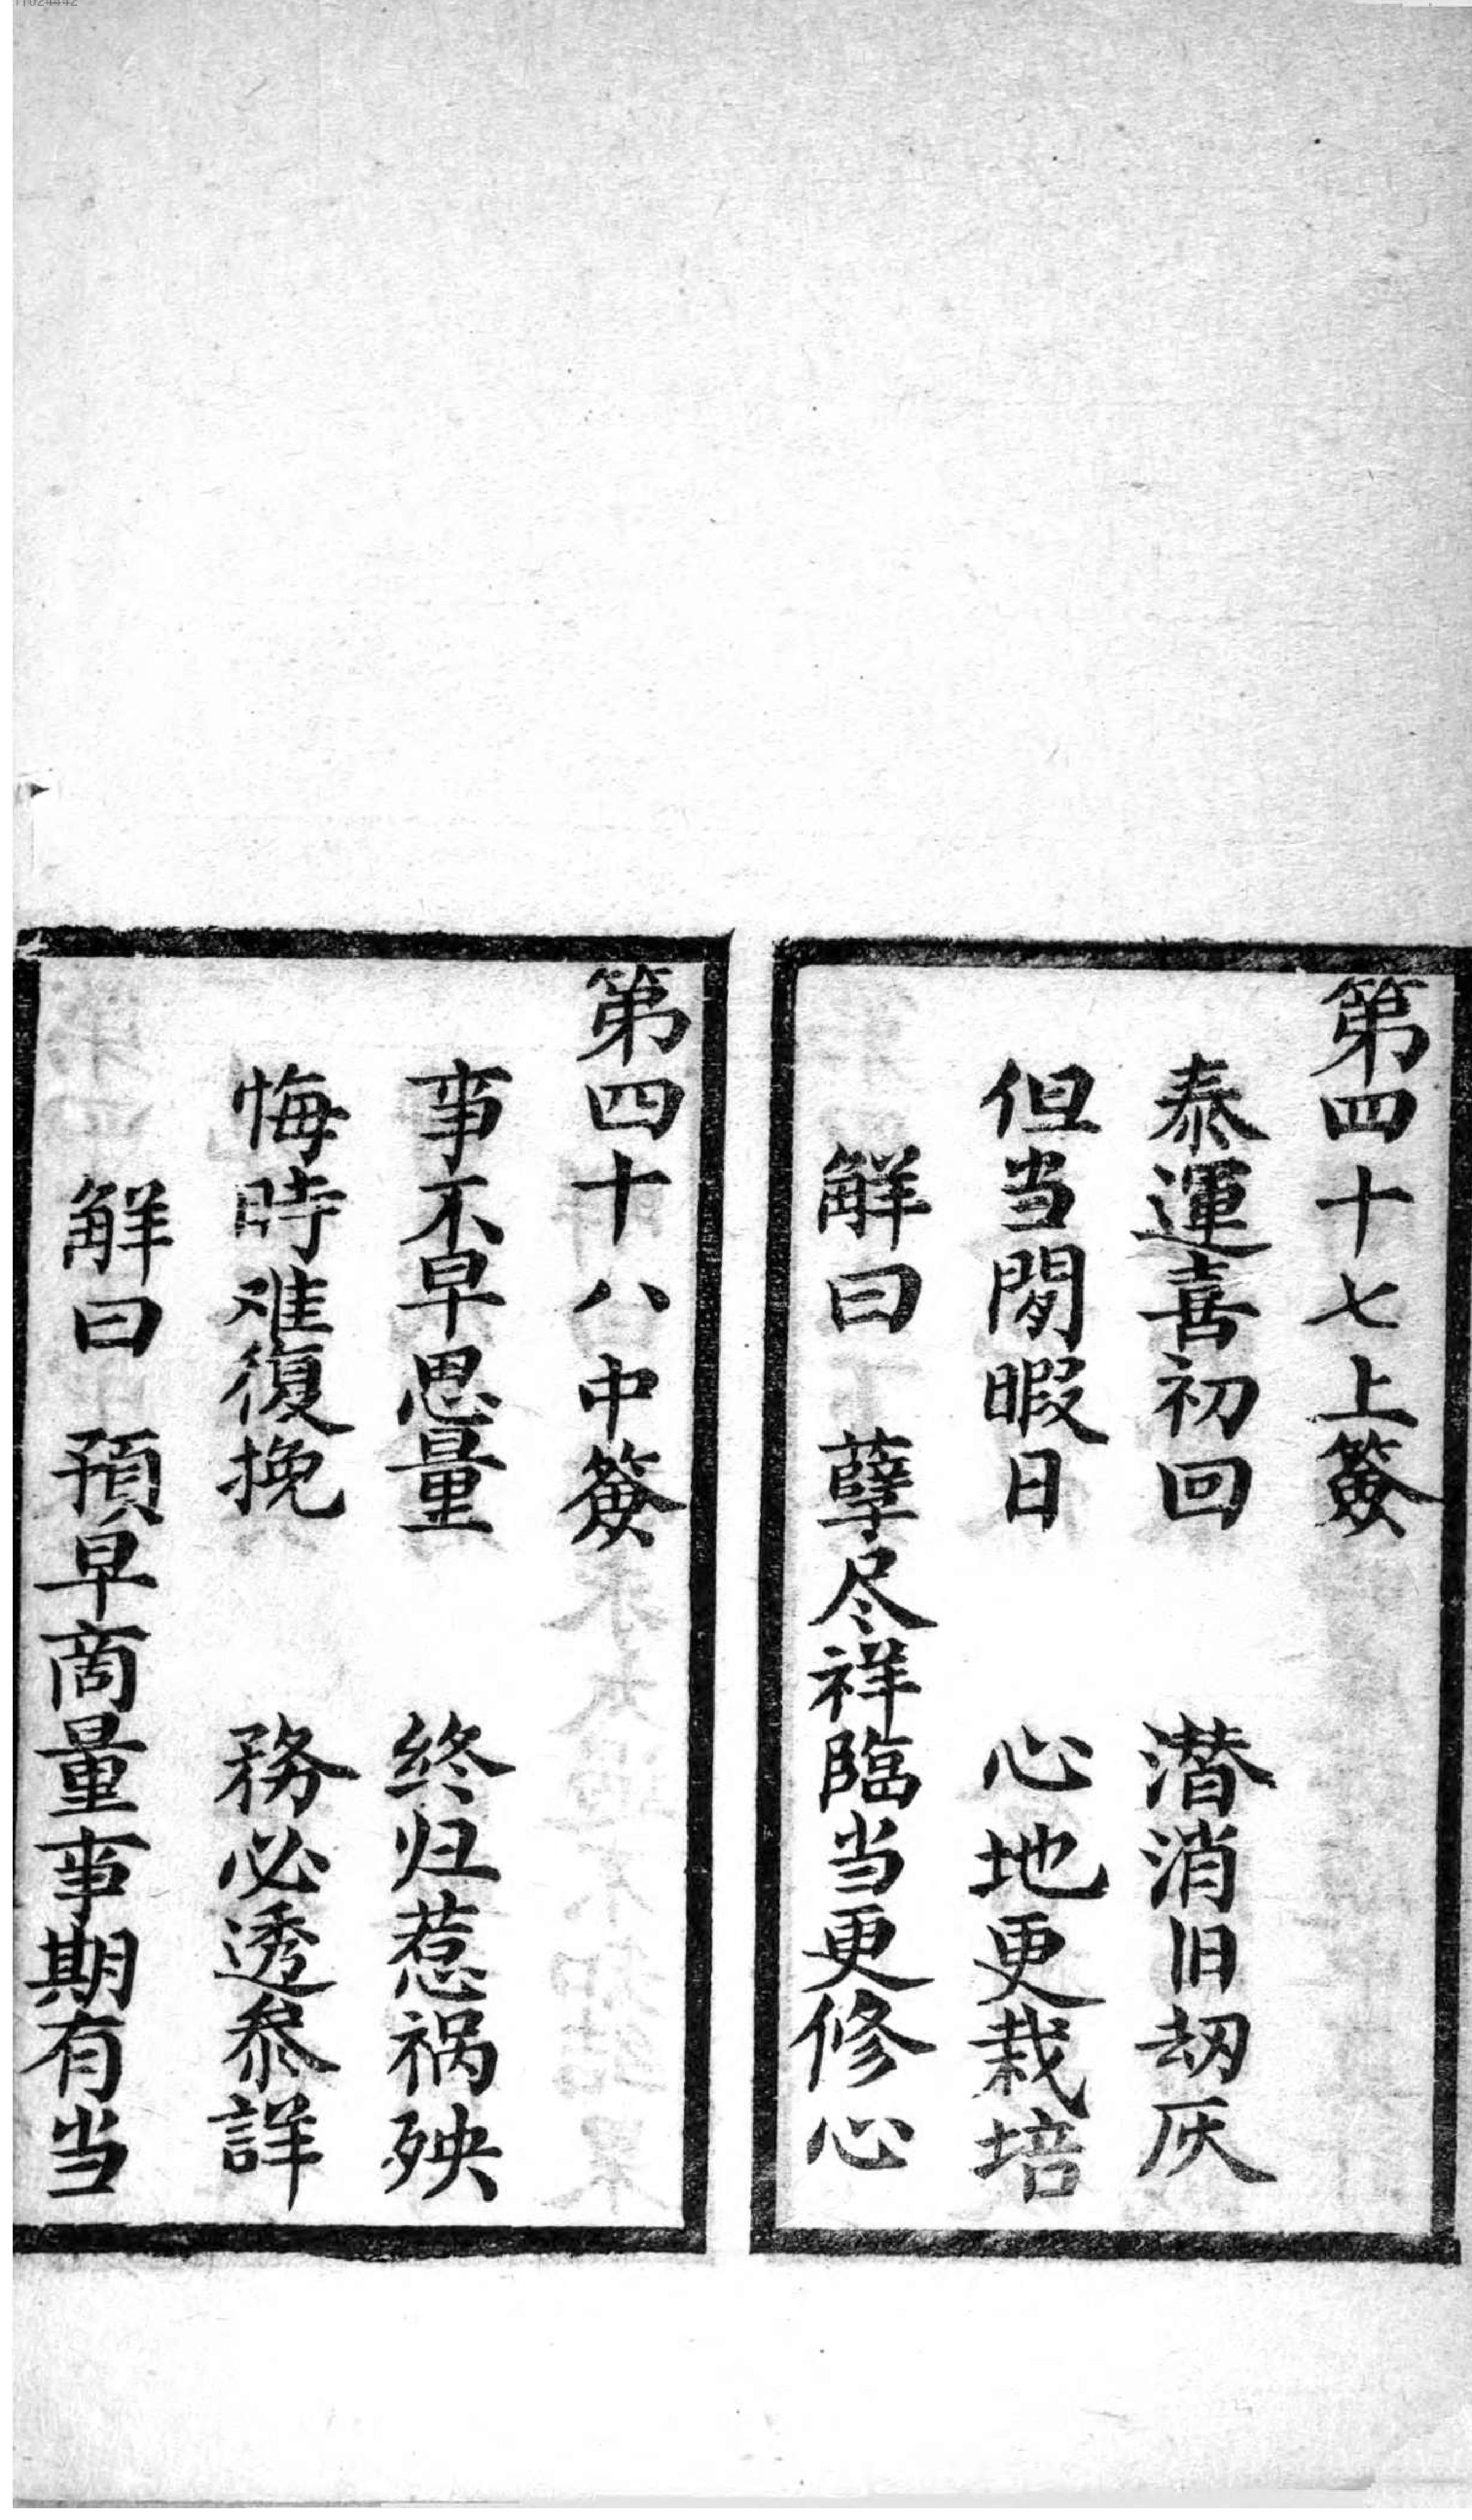 第四十七上簽
泰運喜初回　潜消旧刼灰
但当閒暇日　心地更栽培
解曰　孽尽祥臨当更修心
第四十八中簽
事不早思量　终归惹祸殃
悔時难復挽　務必透叅詳
解曰　預早商量事期有当